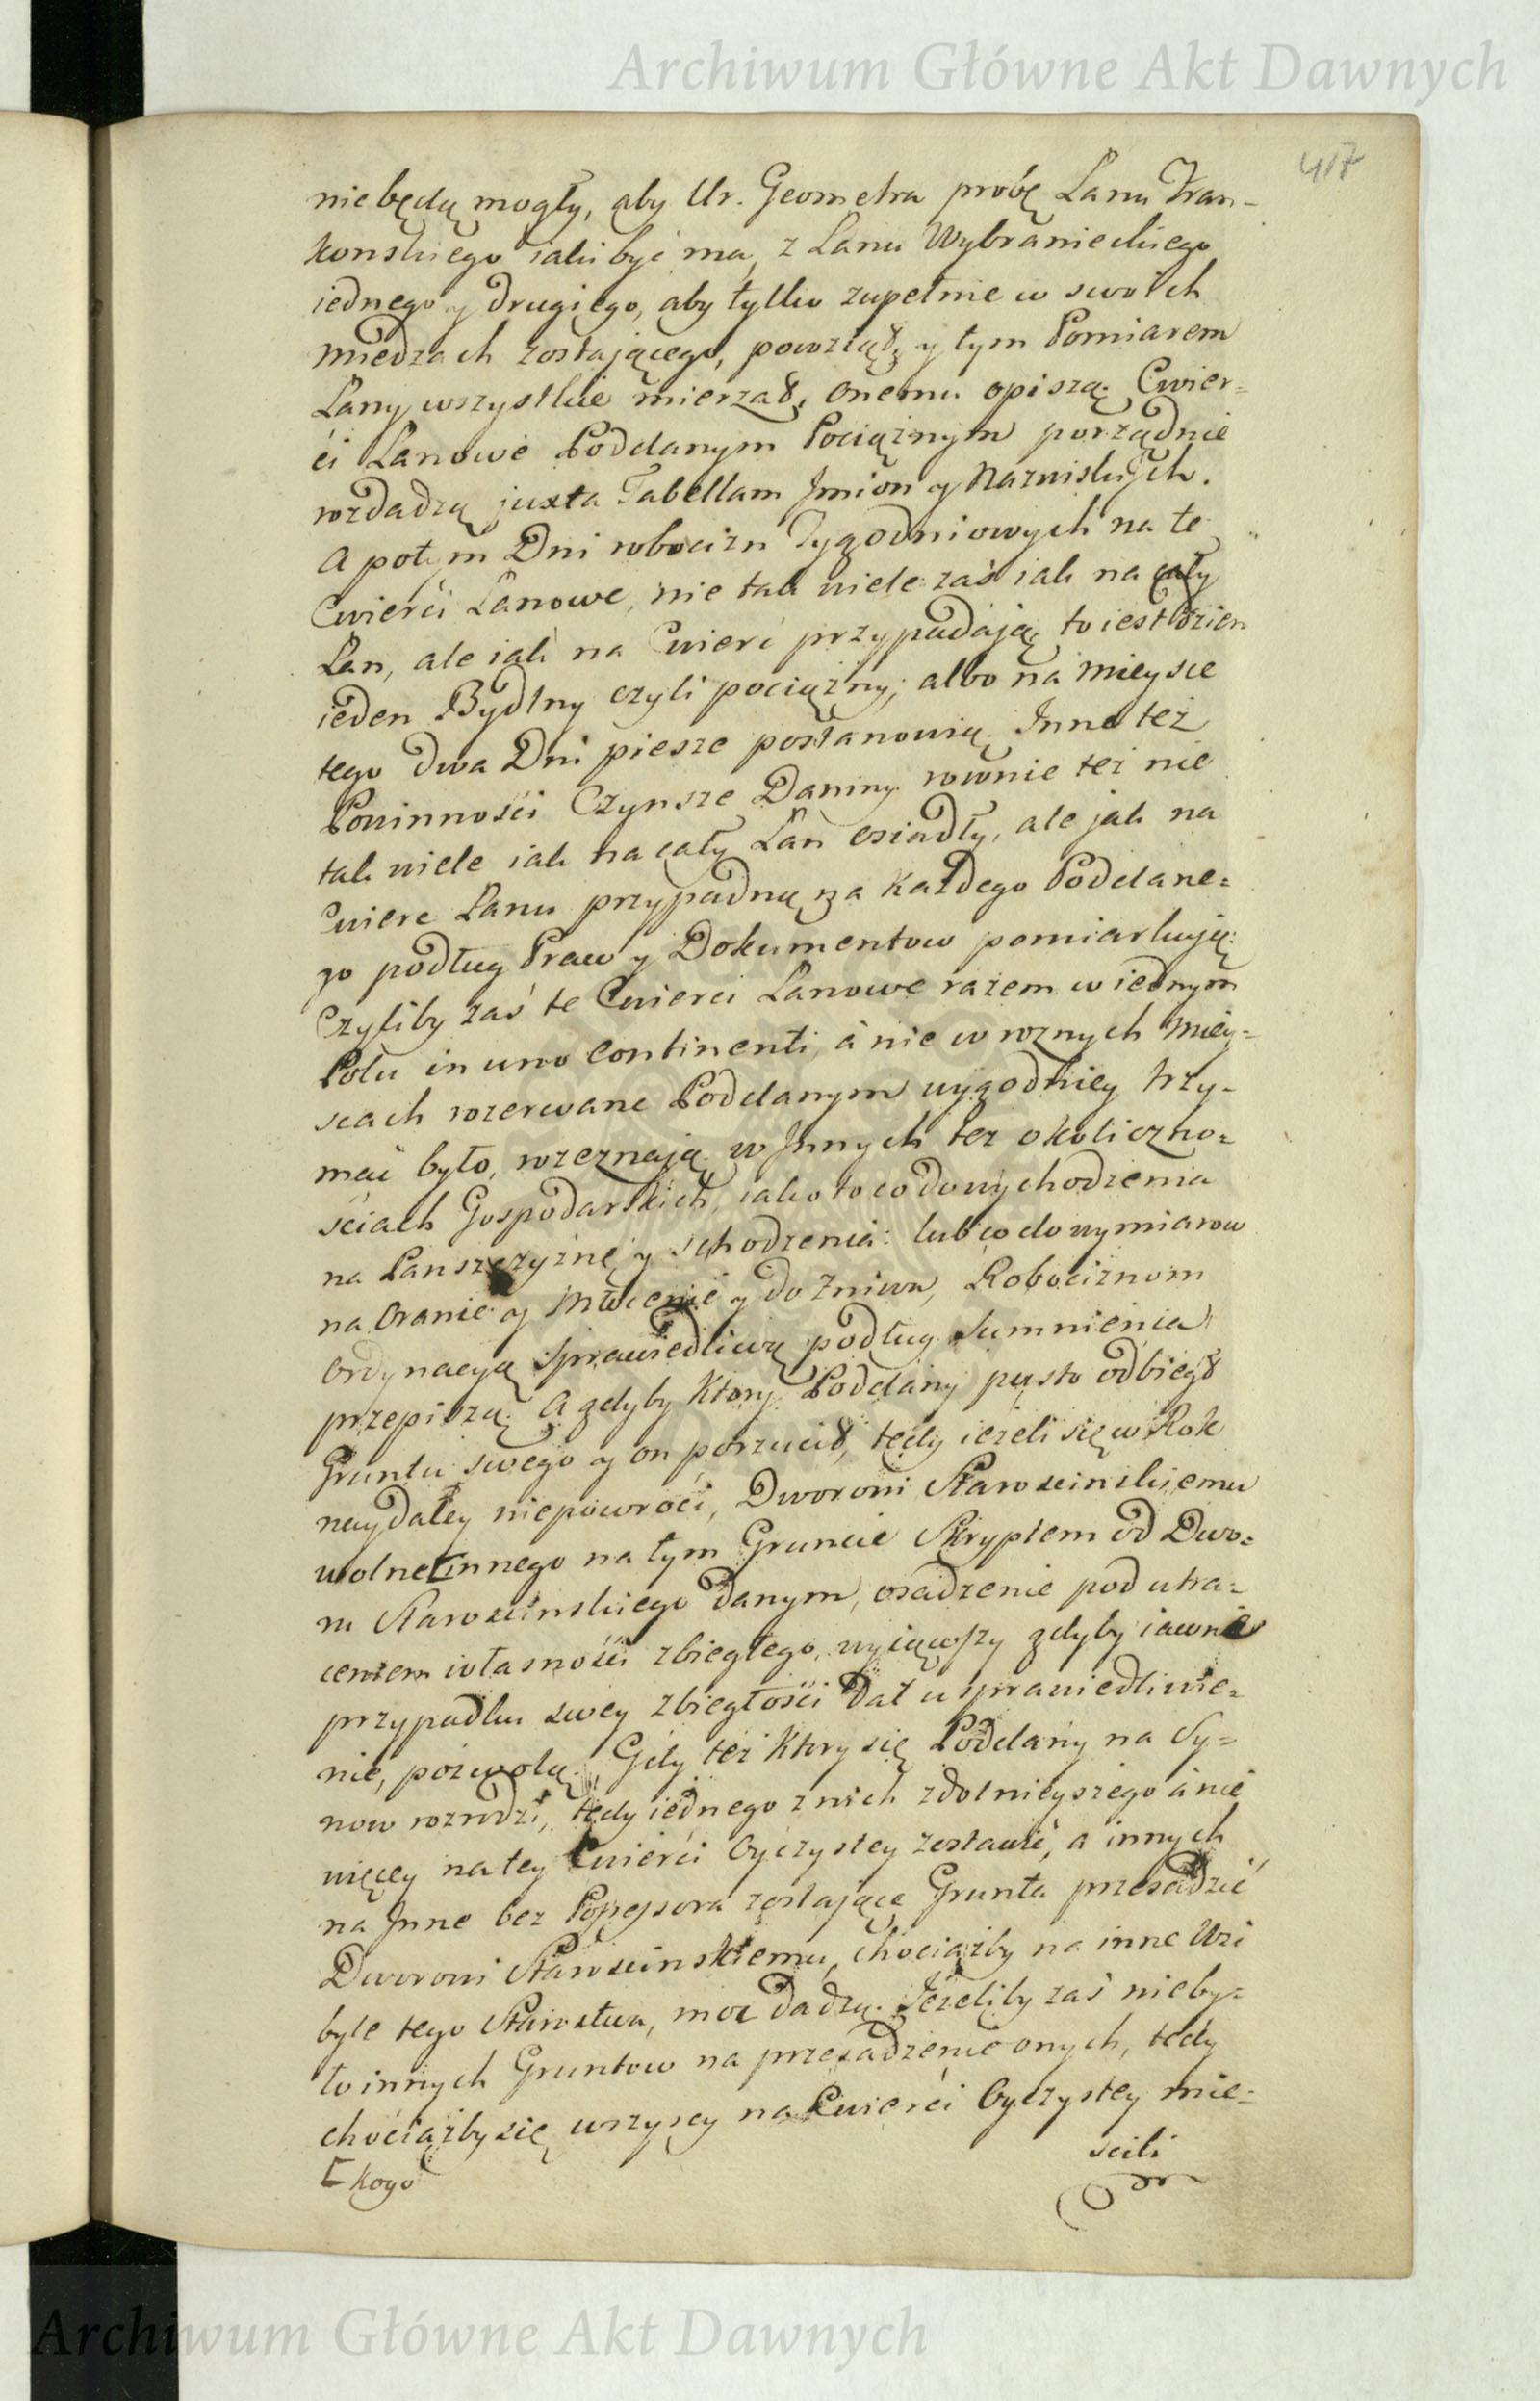 Archiwum Główne Akt Dawnych
417
niebędą mogły, aby Ur. Geometra probę Lanu Fran-
konskiego iaki być ma, z Lanu Wybranieckiego
iednego y drugiego, aby tylko zupełnie w swoich
miedzach zostającego, powziął, y tym Pomiarem
Lany wszystkie mierzał, onemu opiszą. Cwier=
ći Lanowe Poddanym Pociąznym porządnie
rozdadzą juxta Tabellam Jmion y Nazwisk Jch.
A potym Dni robocizn Tygodniowych na te
Cwierći Lanowe, nie tak wiele zaś iak na cały
Lan, ale iak na Cwierć przypadają, to iest dzien
ieden Bydlny czyli pociązny, albo na mieysce
tego dwa Dni piesze postanowią. Inne też
Powinnośći Czynsze Daniny rownie też nie
tak wiele iak na cały Lan osiadły, ale jak na
Cwierc Lanu przypadną na Każdego Poddane=
go podług Praw y Dokumentow pomiarkują:
Czyliby zaś te Cwierci Lanowe razem w iednym
Polu in uno continenti, á nie w roznych miey=
scach rozerwane Poddanym wygodniey trzy-
mać było, rozeznają. w Jnnych też okoliczno=
śćiach Gospodarskich, iako to co do wychodzenia
na Panszczyznę y schodzenia: lub co do wymiarow
na Oranie y młocenie y do Zniwa, Robociznom
Ordynacyą sprawiedliwą podług sumnienia
przepiszą. A gdyby Ktory Poddany pusto odbiegł
Gruntu swego y on porzucił, tedy ieżeli się w Rok
naydaley niepowroci, Dworowi Staroscinskiemu
wolne [innego na tym Gruncie Skryptem od Dwo=
ru Staroscinskiego danym, osadzenie pod utra=
ceniem własnośći zbiegłego, wyiąwszy gdyby iawnie
przypadku swey zbiegłości dał usprawiedliwie=
nie, pozwolą. Gdy też Ktory się Poddany na Sy=
now rozrodzi, tedy iednego z nich zdolnieyszego á nie
więcey na tey Cwierći Oyczystey zostawić, a innych
na Jnne bez Possessora zostające Grunta przesadzić
Dworowi Staroscinskiemu, chociażby na inne Wsi
byle tego Starostwa, moc dadzą. Jeżeliby zaś nieby=
ło innych Gruntow na przesadzenie onych, tedy
choćiażby się wszyscy na Cwierći Oyczystey mie=
scili
[kogo
Archiwum Główne Akt Dawnych